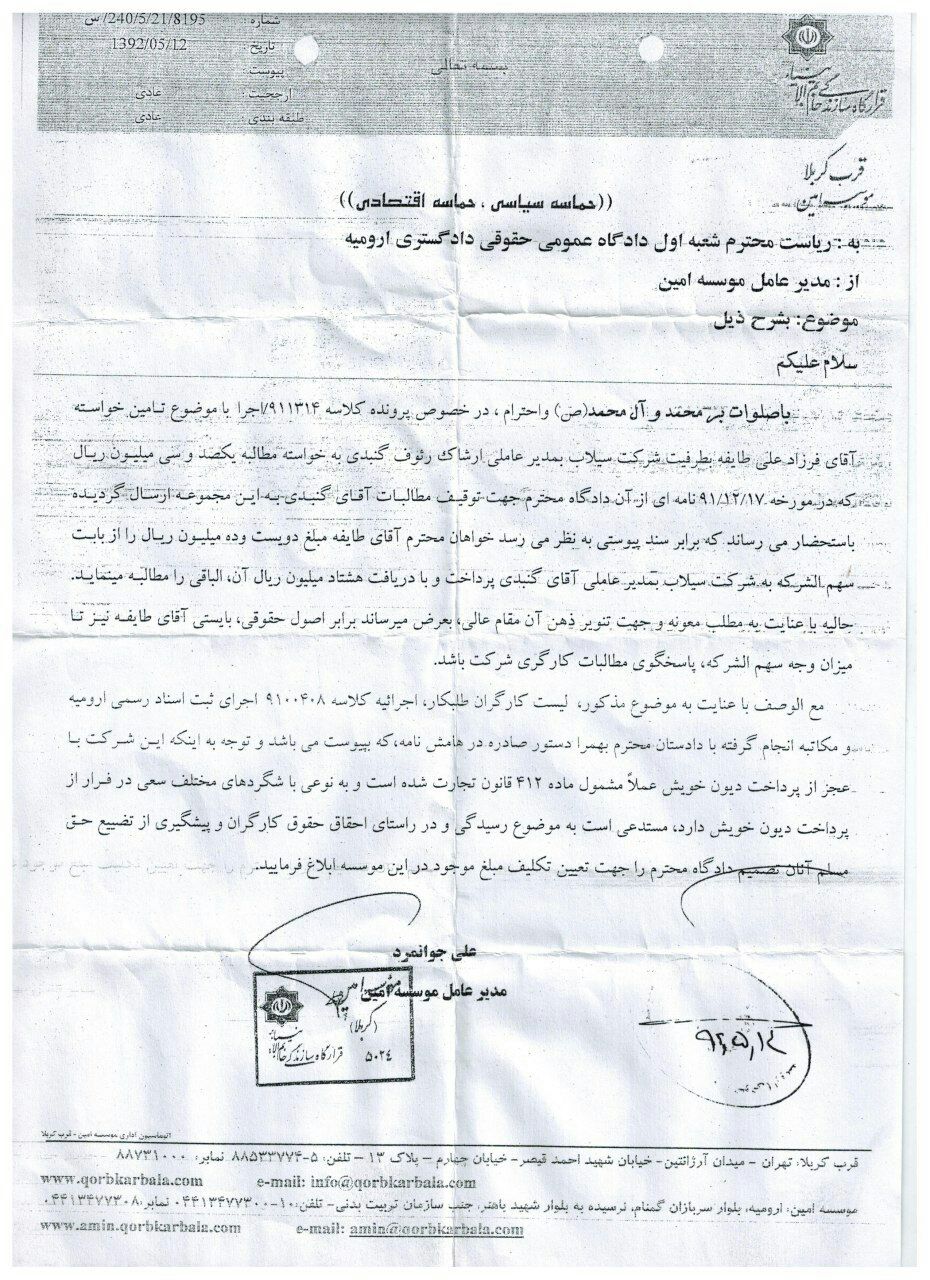 شماره : 240/5/21/8195/س
تاریخ : 1392/05/12
پیوست :
ارجحیت : عادی
طبقه بندی : عادی
بسمه تعالی
قرارگاه سازندگی خاتم الانبیاء
قرب کربلا
موسسه امین
((حماسه سیاسی ، حماسه اقتصادی))
به : ریاست محترم شعبه اول دادگاه عمومی حقوقی دادگستری ارومیه
از : مدیر عامل موسسه امین
موضوع: بشرح ذیل
سلام علیکم
باصلوات بر محمد و آل محمد(ص) واحترام ، در خصوص پرونده کلاسه ۹۱۱۳۱۴/اجرا با موضوع تامین خواسته
آقای فرزاد علی طایفه بطرفیت شرکت سیلاب بمدیر عاملی ارشاك رئوف گنبدی به خواسته مطالبه یکصد و سی میلیون ریال
که در مورخه ۹۱/۱۲/۱۷ نامه ای از آن دادگاه محترم جهت توقیف مطالبات آقای گنبدی به این مجموعه ارسال گردیده
باستحضار می رساند که برابر سند پیوستی به نظر می رسد خواهان محترم آقای طایفه مبلغ دویست وده میلیون ریال را از بابت
سهم الشرکه به شرکت سیلاب بمدیر عاملی آقای گنبدی پرداخت و با دریافت هشتاد میلیون ریال آن، الباقی را مطالبه مینماید.
حالیه با عنایت به مطلب معونه و جهت تنویر ذهن آن مقام عالی، بعرض میرساند برابر اصول حقوقی، بایستی آقای طایفه نیز تا
میزان وجه سهم الشرکه، پاسخگوی مطالبات کارگری شرکت باشد.
مع الوصف با عنایت به موضوع مذکور، لیست کارگران طلبکار، اجرائیه کلاسه ۹۱۰۰۴۰۸ اجرای ثبت اسناد رسمی ارومیه
و مکاتبه انجام گرفته با دادستان محترم بهمرا دستور صادره در هامش نامه،که بپیوست می باشد و توجه به اینکه این شرکت با
عجز از پرداخت دیون خویش عملاً مشمول ماده ۴۱۲ قانون تجارت شده است و به نوعی با شگردهای مختلف سعی در فرار از
پرداخت دیون خویش دارد، مستدعی است به موضوع رسیدگی و در راستای احقاق حقوق کارگران و پیشگیری از تضییع حق
مسلم آنان تصمیم دادگاه محترم را جهت تعیین تکلیف مبلغ موجود در این موسسه ابلاغ فرمایید.
علی جوانمرد
مدیر عامل موسسه امین
موسسه امین
(کربلا)
قرارگاه سازندگی خاتم الانبیاء
۵۰۲۴
۹۲,۵,۱۲
اتوماسیون اداری موسسه امین - قرب کربلا
قرب کربلا: تهران – میدان آرژانتین- خیابان شهید احمد قیصر- خیابان چهارم – پلاک ۱۳ – تلفن: ۵-۸۸۵۳۳۷۷۴ نمابر: ۸۸۷۳۱۰۰۰
www.qorbkarbala.com e-mail: info@qorbkarbala.com
موسسه امین: ارومیه، بلوار سربازان گمنام، نرسیده به بلوار شهید باهنر، جنب سازمان تربیت بدنی- تلفن:۱۰-۰۴۴۱۳۴۷۷۳۰۰ نمابر:۰۴۴۱۳۴۷۷۳۰۸
www.amin.qorbkarbala.com e-mail: amin@qorbkarbala.com